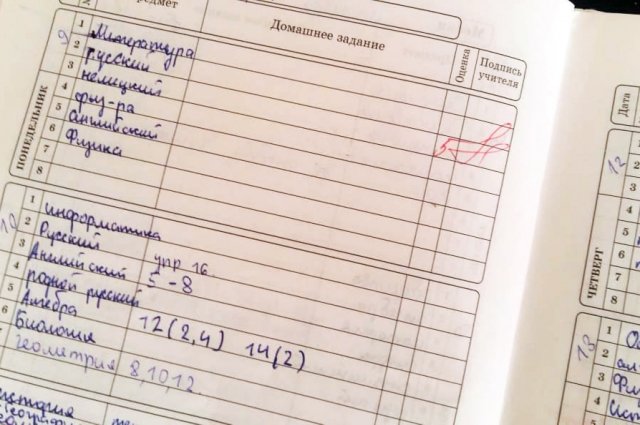 редмет
Домашнее задание
Оценка
Подпись учителя
9
ПОНЕДЕЛЬНИК
1 Литература
2 Русский
3 немецкий
4 физ-ра
5 английский
6 Физика
7
8
10
1 информатика
2 Русский упр 16
3 Английский 5-8
4 родной русский
5 Алгебра 12(2,4) 14(2)
6 Биология
геометрия 8,10,12.
Дата
12
ЧЕТВЕРГ
1
2
3
4
5
6
7
8
13
1
2
3
4